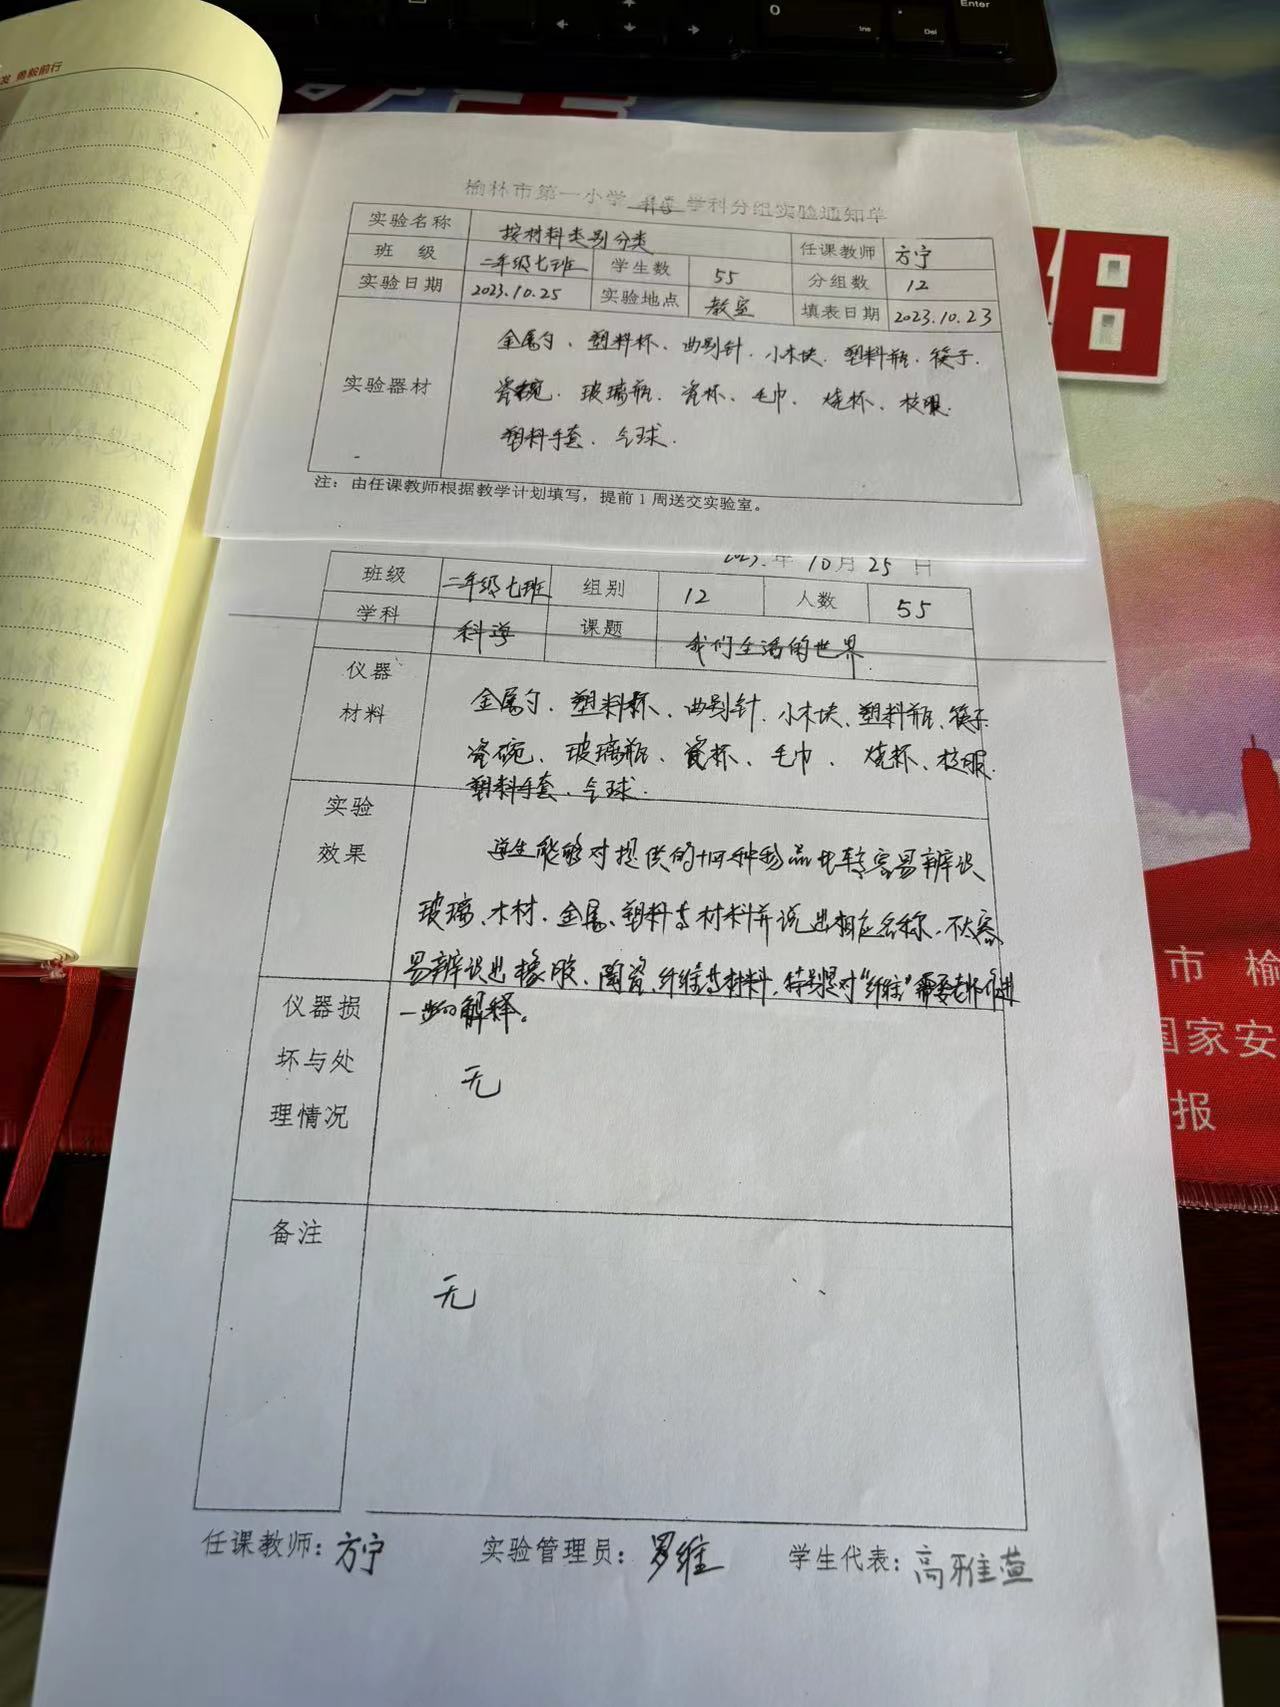 发 勇毅前行
0
Ins
Del
Enter
榆林市第一小学 科学 学科分组实验通知单
实验名称 按材料类别分类 任课教师 方宁
班 级 二年级七班 学生数 55 分组数 12
实验日期 2023.10.25 实验地点 教室 填表日期 2023.10.23
实验器材 金属勺、塑料杯、曲别针、小木块、塑料瓶、筷子、
瓷碗、玻璃瓶、瓷杯、毛巾、烧杯、校服、
塑料手套、气球.
注：由任课教师根据教学计划填写，提前1周送交实验室。
2023.年 10月 25 日
班级 二年级七班 组别 12 人数 55
学科 科学 课题 我们生活的世界
仪器材料 金属勺、塑料杯、曲别针、小木块、塑料瓶、筷子、
瓷碗、玻璃瓶、瓷杯、毛巾、烧杯、校服、
塑料手套、气球.
实验效果 学生能够对提供的十四种物品比较容易辨识
玻璃、木材、金属、塑料等材料并说出相应名称，不太容
易辨识出橡胶、陶瓷、纤维等材料，特别是对“纤维”需要老师作进
一步的解释。
仪器损坏与处理情况 无
备注 无
任课教师：方宁 实验管理员：罗维 学生代表：高雅萱
市 榆
国家安
报